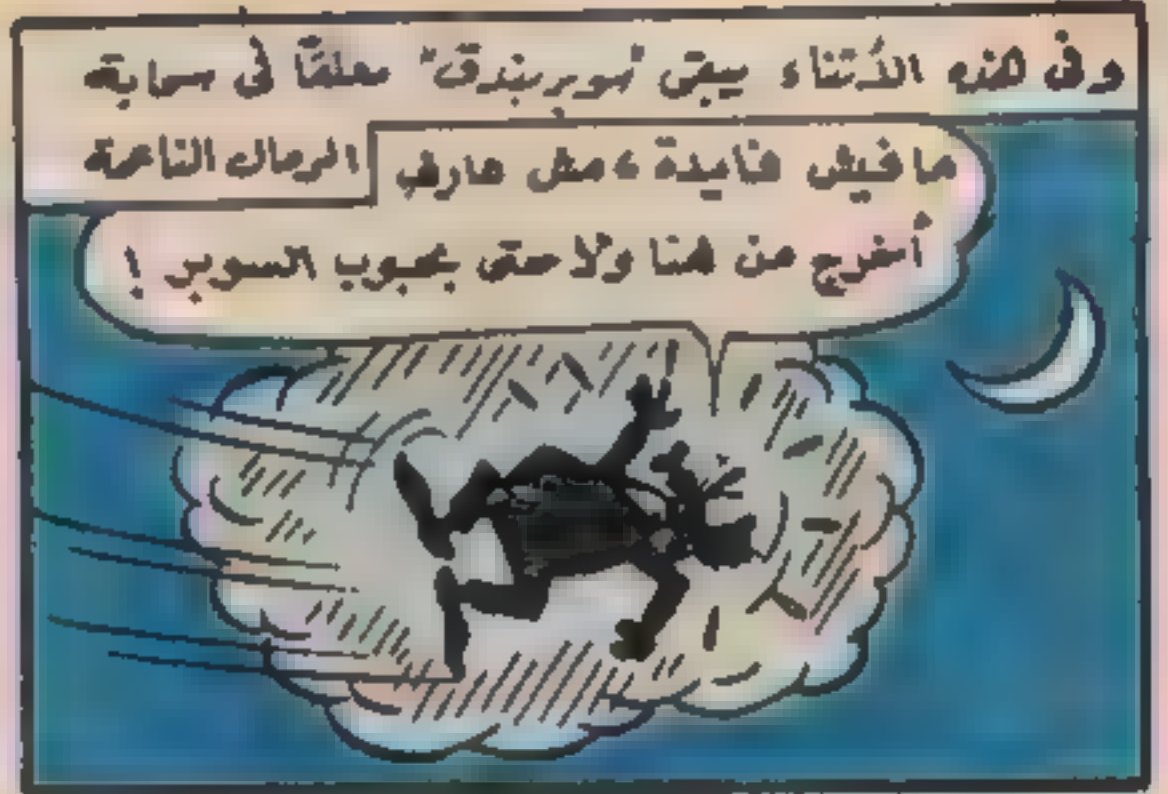 وفى هذه الأثناء يبقى "سوبر بندق" معلقاً فى سحابة
الرمال الناعمة
مافيش فايدة، مش عارف
أخرج من هنا ولا حتى بحبوب السوبر!